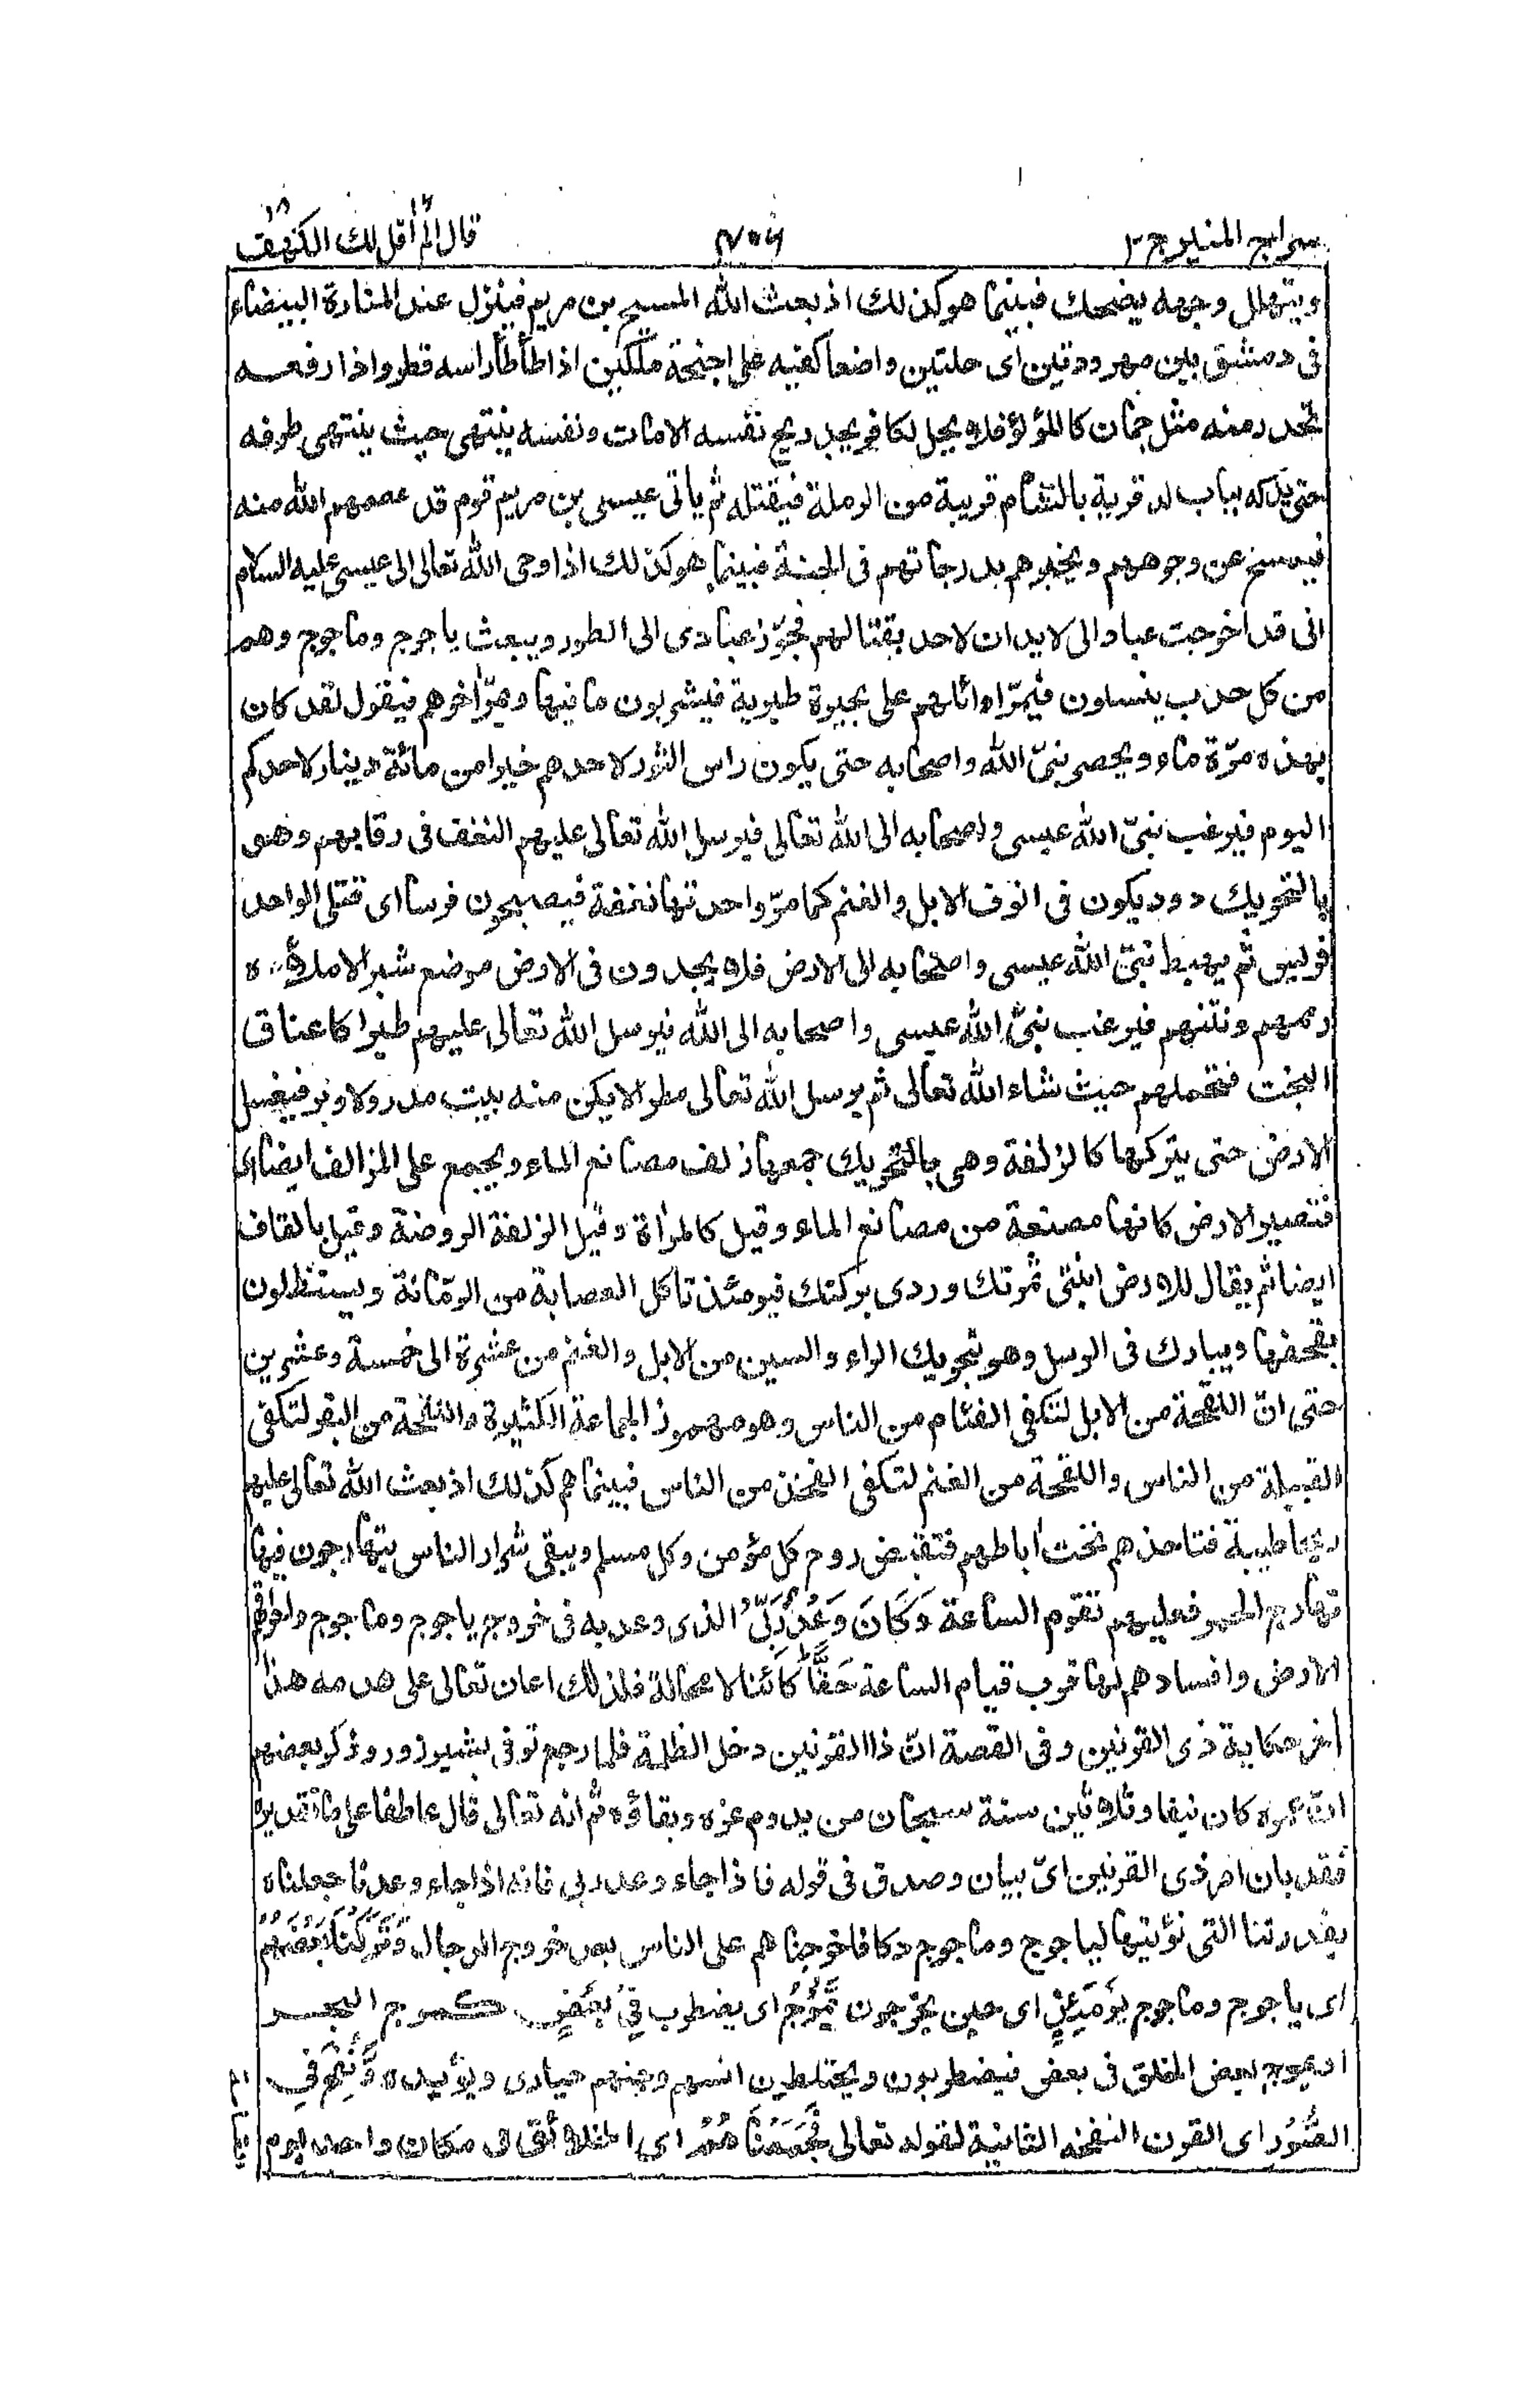 سراج المنير ج٢
٧٥٦
قال الم أقل لك الكهف ١٨
ويتهلل وجهه يضحك فبينما هو كذلك اذ بعث الله المسيح بن مريم فينزل عند المنارة البيضاء
فى دمشق بين مهرودتين اى حلتين واضعا كفيه على اجنحة ملكين اذا طأطأ راسه قطر واذا رفعه
تحدر منه مثل جمان كاللؤلؤ فلا يحل لكافر يجد ريح نفسه الا مات ونفسه ينتهى حيث ينتهى طرفه
حتى يدركه بباب لد قرية بالشام قريبة من الرملة فيقتله ثم ياتى عيسى بن مريم قوم قد عصمهم الله منه
فيمسح عن وجوههم ويخبرهم بدرجاتهم فى الجنة فبينما هو كذلك اذ اوحى الله تعالى الى عيسى عليه السلام
انى قد اخرجت عبادا لى لا يدان لاحد بقتالهم فحرّز عبادى الى الطور ويبعث ياجوج وماجوج وهم
من كل حدب ينسلون فيمرّ اوائلهم على بحيرة طبرية فيشربون ما فيها ويمرّ اخرهم فيقول لقد كان
بهذه مرّة ماء ويحصر نبىّ الله واصحابه حتى يكون راس الثور لاحدهم خيرا من مائة دينار لاحدكم
اليوم فيرغب نبىّ الله عيسى واصحابه الى الله تعالى فيرسل الله تعالى عليهم النغف فى رقابهم وهى
بالتحريك دود يكون فى انوف الابل والغنم كما مرّ واحدتها نغفة فيصبحون فرسا اى قتلى الواحد
فريس ثم يهبط نبىّ الله عيسى واصحابه الى الارض فلا يجدون فى الارض موضع شبر الا ملأه
زهمهم ونتنهم فيرغب نبىّ الله عيسى واصحابه الى الله فيرسل الله تعالى عليهم طيرا كاعناق
البخت فتحملهم حيث شاء الله تعالى ثم يرسل الله تعالى مطرا لا يكن منه بيت مدر ولا وبر فيغسل
الارض حتى يتركها كالزلفة وهى بالتحريك جمعها زلف مصانع الماء ويجمع على المزالف ايضا اى
فتصير الارض كانها مصنعة من مصانع الماء وقيل كالمرأة وقيل الزلفة الروضة وقيل بالقاف
ايضا ثم يقال للارض انبتى ثمرتك وردى بركتك فيومئذ تاكل العصابة من الرمّانة ويستظلون
بقحفها ويبارك فى الرسل وهو بتحريك الراء والسين من الابل والغنم من عشرة الى خمسة وعشرين
حتى انّ اللقحة من الابل لتكفى الفئام من الناس وهو مهموز الجماعة الكثيرة واللقحة من البقر لتكفى
القبيلة من الناس واللقحة من الغنم لتكفى الفخذ من الناس فبينما هم كذلك اذ بعث الله تعالى عليهم
ريحا طيبة فتاخذهم تحت اباطهم فتقبض روح كل مؤمن وكل مسلم ويبقى شرار الناس يتهارجون فيها
تهارج الحمر فعليهم تقوم الساعة وَكَانَ وَعْدُ رَبِّىْ الذى وعد به فى خروج ياجوج وماجوج واحراقهم
الارض وافسادهم لها قرب قيام الساعة حَقًّا كائنا لا محالة فلذلك اعان تعالى على هدمه هذا
اخر حكاية ذى القرنين وفى القصة انّ ذا القرنين دخل الظلمة فلما رجع توفى بشهر زور وذكر بعضهم
انّ عمره كان نيفا وثلاثين سنة سبحان من يدوم عزه وبقاؤه ثم انه تعالى قال عاطفا على ما تقديره
فقد بان امر ذى القرنين اىّ بيان وصدق فى قوله فاذا جاء وعد ربى فانه اذا جاء وعدنا جعلناه
بقدرتنا التى نؤتيها لياجوج وماجوج دكا فاخرجناهم على الناس بعد خروج الدجال وَتَرَكْنَا بَعْضَهُمْ
اى ياجوج وماجوج يَوْمَئِذٍ اى حين يخرجون يَّمُوْجُ اى يضطرب فِىْ بَعْضٍ كموج البحر
او يموج بعض الخلق فى بعض فيضطربون ويختلطون انسهم وجنهم حيارى ويؤيده وَّنُفِخَ فِى
الصُّوْرِ اى القرن النفخة الثانية لقوله تعالى فَجَمَعْنَاهُمْ اى الخلائق فى مكان واحد يوم